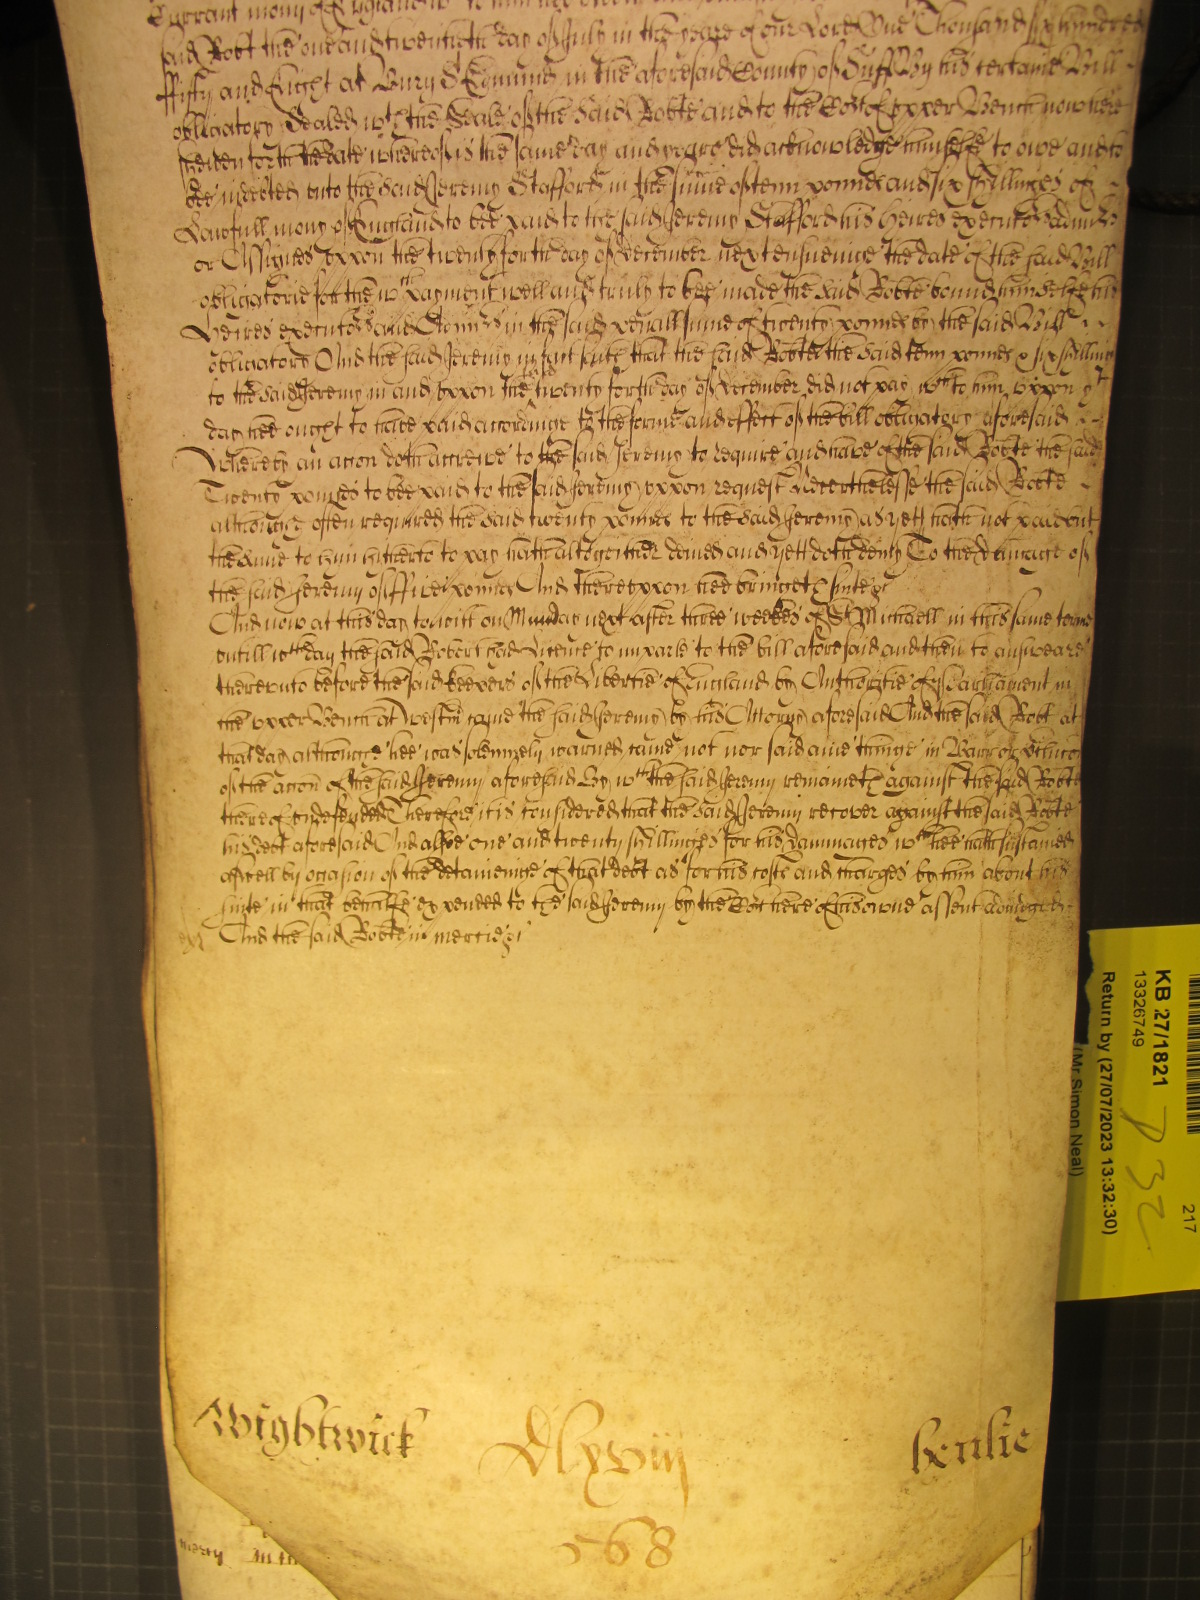 Currant mony of England
said Robt the one and twentith day of July in the yeare of our Lord One Thousand six hundred
ffifty and Eight at Bury St Edmunds in the aforesaid County of Suff By his certaine Bill
obligatory Sealed wth the Seale of the said Robte and to the Cort of Upper Bench now here
shewen forth the date whereof is the same day and yeare did acknowledge himselfe to owe and to
bee indebted unto the said Jeremy Stafford in the summe of tenn pounds and six shillinges of
Lawfull mony of England to bee paid to the said Jeremy Stafford his heires executors Admrs
or Assignes uppon the twenty forth day of December next ensueinge the date of the said Bill
obligatorie for the wch payment well and truly to bee made the said Robte bound himselfe his
Heires executors and Admrs in the said penall sume of twenty pounds by the said Bill
obligatory And the said Jeremy in fact saith that the said Robte the said tenn pounds & six shillings
to the said Jeremy in and uppon the said twenty forth day of December did not pay wch to him uppon yt
day hee ought to have paid accordinge to the forme and effect of the bill obligatory aforesaid
Whereby an accon doth accrewe to the said Jeremy to require and have of the said Robte the said
Twenty pounds to bee paid to the said Jeremy uppon request Neverthelesse the said Robte
althoughe often required the said twenty pounds to the said Jeremy as yett hath not paid but
the same to him hitherto to pay hath altogether denied and yett doth deny To the damage of
the said Jeremy of ffive pounds And thereuppon hee bringeth suite &c
And now at this day to witt on Munday next after three weekes of St Michaell in this same terme
untill wch day the said Robert had Licence to imparle to the bill aforesaid and then to answeare
thereunto before the said keepers of the Libertie of England by Authoritie of Parliament in
the upper Bench at Westmr came the said Jeremy by his Attorny aforesaid And the said Robt at
that day althoughe hee was solemnely warned came not nor said anie thinge in Barr or
of the accon of the said Jeremy aforesaid By wch the said Jeremy remaineth against the said Robte
thereof undefended Therefore it is considered that the said Jeremy recover against the said Robte
his debt aforesaid And alsoe one and twenty shillinges for his dammages wch hee hath sustained
aswell by occasion of the detaineinge of that debt as for his costs and charges by him about his
suite in that behalfe expended to the said Jeremy by the Cort here of his owne assent adiudged
And the said Robte in mercie &c
Wightwick Dlxviij henlie
568
mercy In
KB 27/1821
13326749
Return by (27/07/2023 13:32:30)
(Mr Simon Neal)
217
P 32